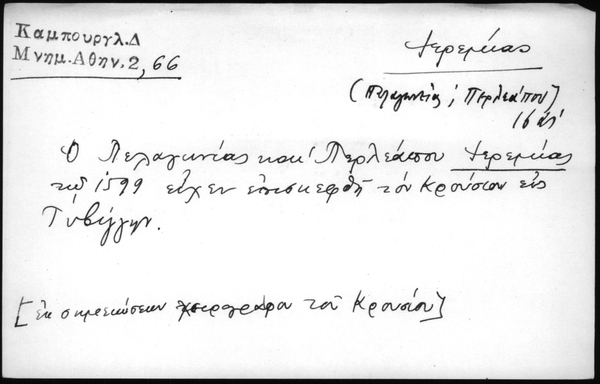 Καμπουργλ.Δ
Μνημ.Αθην.2, 66
Ἱερεμίας
(Πελαγωνείας ; Περλεάπου)
16 αἰ
Ὁ Πελαγωνίας καὶ Περλεάπου Ἱερεμίας
τῷ 1599 εἶχεν ἐπισκεφθῆ τὸν Κρούσιον εἰς
Τύβιγγην.
[ἐκ σημειώσεων χειρογράφου τοῦ Κρουσίου]